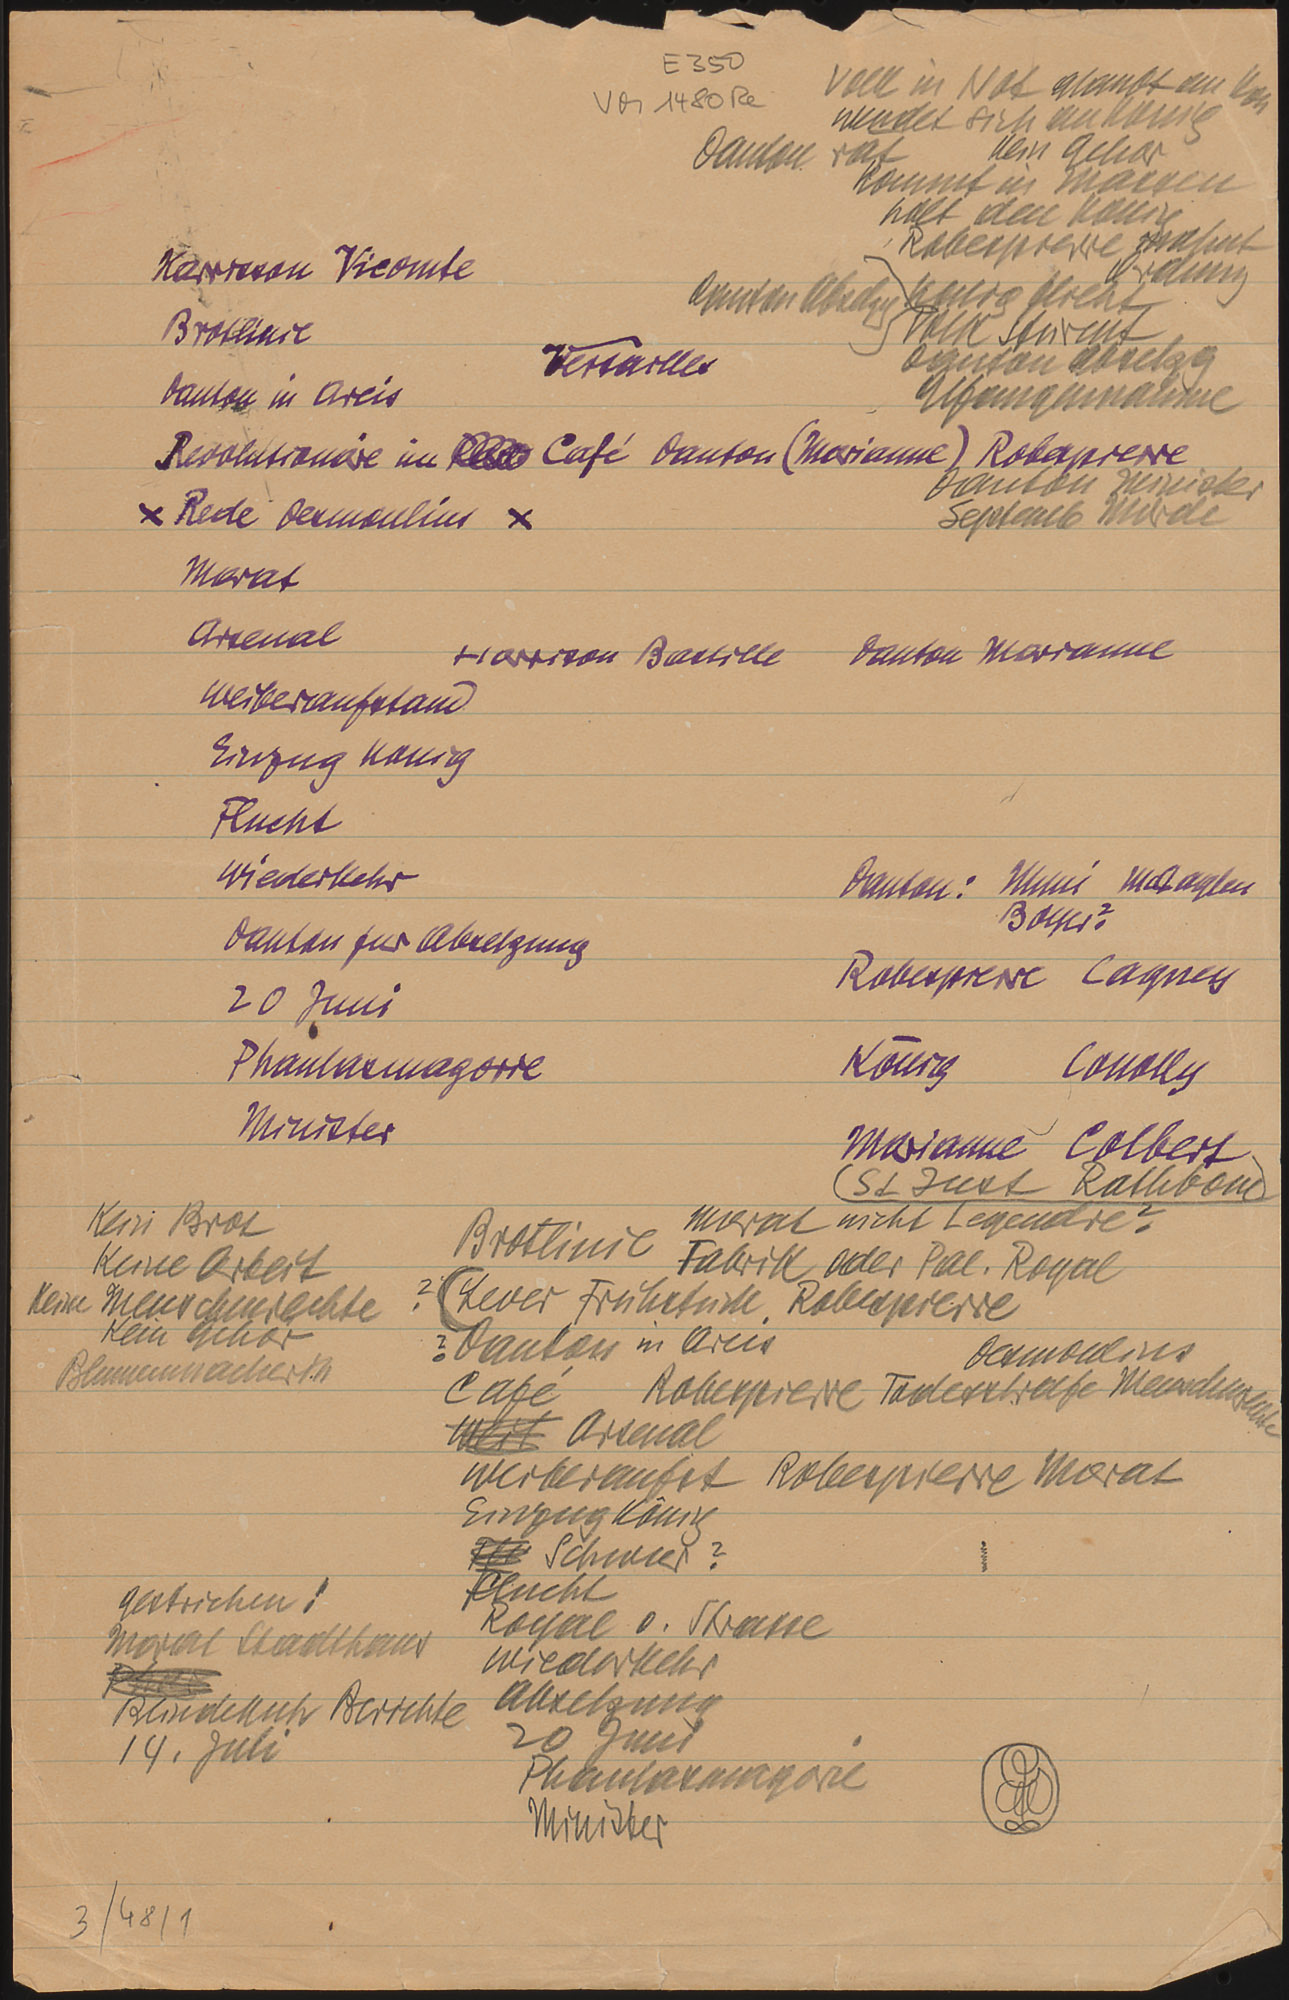 E350
Vor 1480 Re
Volk in Not glaubt an
wendet sich an König
Danton rät kein Gehör
kommt in Massen
holt den König
Robespierre mahnt
Ordnung
Danton Absetzg König flieht
Volk stürmt
Danton Absetzg
Gefangennahme
Harrison Vicomte
Brotlinie
Versailles
Danton in Arcis
Revolutionäre im Café Danton (Marianne) Robespierre
Danton Minister
Septemb Morde
x Rede Desmoulins x
Marat
Arsenal
Harrison Bastille Danton Marianne
Weiberaufstand
Einzug König
Flucht
Wiederkehr
Danton: Muni
Boyer?
Danton für Absetzung
Robespierre Cagney
20 Juni
Phantasmagorie
König Conolly
Minister
Marianne Colbert
(St Just Rathbone)
Kein Brot
Keine Arbeit
Keine Menschenrechte
Kein Gehör
Brotlinie Marat nicht Legendre?
Fabrik oder Pal. Royal
? (Lever Frühstück Robespierre
? Danton in Arcis
Desmoulins
Café Robespierre Todesstrafe Menschenrechte
Arsenal
Weiberaufst Robespierre Marat
Einzug König
?
Flucht
Royal o. Strasse
Wiederkehr
Absetzung
20 Juni
Phantasmagorie
Minister
gestrichen!
Marat Stadthaus
Blindekuh Berichte
14. Juli
3/48/1